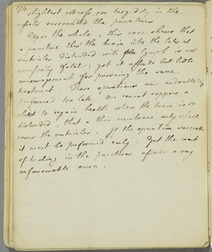 slightest redness, nor turgidity in the
space surrounded the puncture.
Upon the whole, this case shews that
a puncture thro the brain into the later
ventricles distended with lymph is not
necessarily fatal; yet it affords but little
encouragement for pursuing the same
treatment. These operations are undoubtedly
performed too late. One cannot suppose a
chld to regain health where the brain is so
distended, that a thin membrane only shall
cover the ventricles. If the operation succeed
it must be performed early. Yet the want
of healing in the puncture affords a very
unfavourable omen.